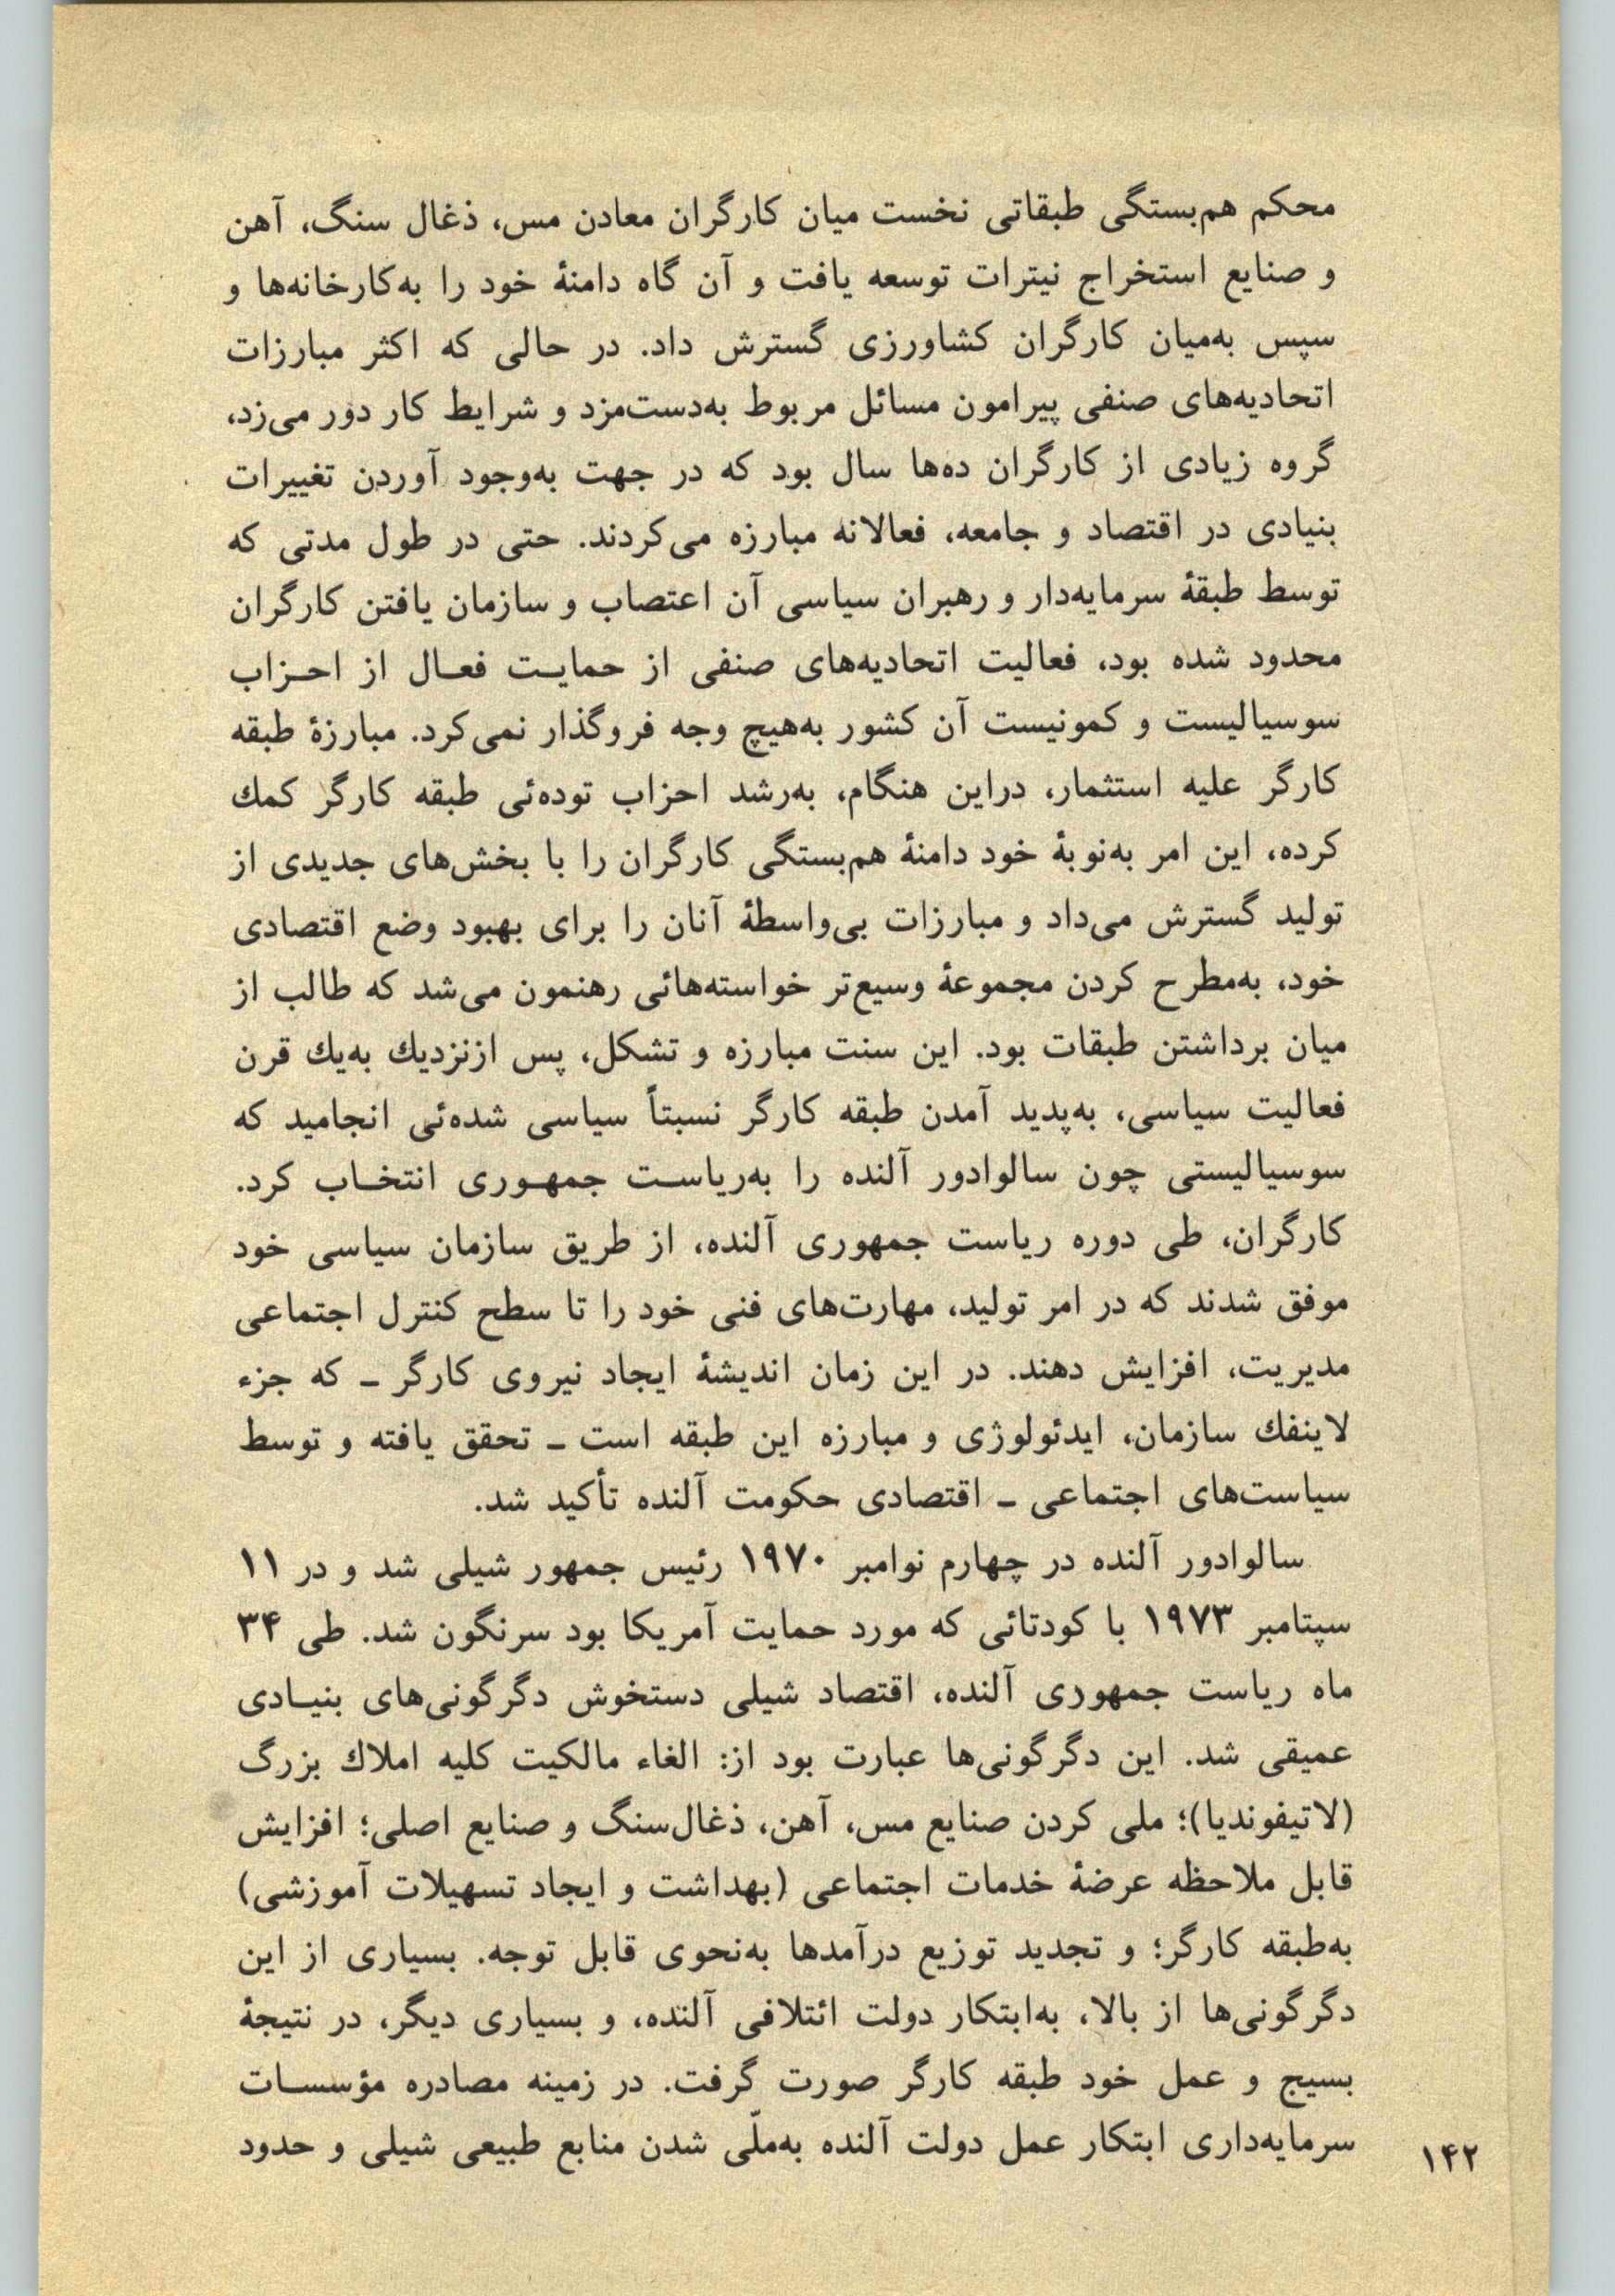 محکم هم‌بستگی طبقاتی نخست میان کارگران معادن مس، ذغال سنگ، آهن
و صنایع استخراج نیترات توسعه یافت و آن گاه دامنهٔ خود را به‌کارخانه‌ها و
سپس به‌میان کارگران کشاورزی گسترش داد. در حالی که اکثر مبارزات
اتحادیه‌های صنفی پیرامون مسائل مربوط به‌دست‌مزد و شرایط کار دور می‌زد،
گروه زیادی از کارگران ده‌ها سال بود که در جهت به‌وجود آوردن تغییرات
بنیادی در اقتصاد و جامعه، فعالانه مبارزه می‌کردند. حتی در طول مدتی که
توسط طبقهٔ سرمایه‌دار و رهبران سیاسی آن اعتصاب و سازمان یافتن کارگران
محدود شده بود، فعالیت اتحادیه‌های صنفی از حمایـت فعـال از احـزاب
سوسیالیست و کمونیست آن کشور به‌هیچ وجه فروگذار نمی‌کرد. مبارزهٔ طبقه
کارگر علیه استثمار، دراین هنگام، به‌رشد احزاب توده‌ئی طبقه کارگر کمك
کرده، این امر به‌نوبهٔ خود دامنهٔ هم‌بستگی کارگران را با بخش‌های جدیدی از
تولید گسترش می‌داد و مبارزات بی‌واسطهٔ آنان را برای بهبود وضع اقتصادی
خود، به‌مطرح کردن مجموعهٔ وسیع‌تر خواسته‌هائی رهنمون می‌شد که طالب از
میان برداشتن طبقات بود. این سنت مبارزه و تشکل، پس ازنزدیك به‌یك قرن
فعالیت سیاسی، به‌پدید آمدن طبقه کارگر نسبتاً سیاسی شده‌ئی انجامید که
سوسیالیستی چون سالوادور آلنده را به‌ریاسـت جمهـوری انتخـاب کرد.
کارگران، طی دوره ریاست جمهوری آلنده، از طریق سازمان سیاسی خود
موفق شدند که در امر تولید، مهارت‌های فنی خود را تا سطح کنترل اجتماعی
مدیریت، افزایش دهند. در این زمان اندیشهٔ ایجاد نیروی کارگر ـ که جزء
لاینفك سازمان، ایدئولوژی و مبارزه این طبقه است ـ تحقق یافته و توسط
سیاست‌های اجتماعی ـ اقتصادی حکومت آلنده تأکید شد.
سالوادور آلنده در چهارم نوامبر ۱۹۷۰ رئیس جمهور شیلی شد و در ۱۱
سپتامبر ۱۹۷۳ با کودتائی که مورد حمایت آمریکا بود سرنگون شد. طی ۳۴
ماه ریاست جمهوری آلنده، اقتصاد شیلی دستخوش دگرگونی‌های بنیـادی
عمیقی شد. این دگرگونی‌ها عبارت بود از: الغاء مالکیت کلیه املاك بزرگ
(لاتیفوندیا)؛ ملی کردن صنایع مس، آهن، ذغال‌سنگ و صنایع اصلی؛ افزایش
قابل ملاحظه عرضهٔ خدمات اجتماعی (بهداشت و ایجاد تسهیلات آموزشی)
به‌طبقه کارگر؛ و تجدید توزیع درآمدها به‌نحوی قابل توجه. بسیاری از این
دگرگونی‌ها از بالا، به‌ابتکار دولت ائتلافی آلنده، و بسیاری دیگر، در نتیجهٔ
بسیج و عمل خود طبقه کارگر صورت گرفت. در زمینه مصادره مؤسسـات
سرمایه‌داری ابتکار عمل دولت آلنده به‌ملّی شدن منابع طبیعی شیلی و حدود
۱۴۲